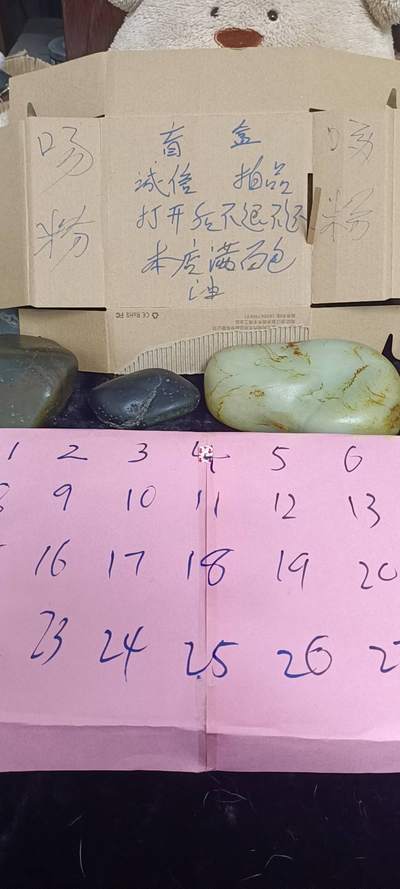 粉
盲 盒
诚信 拍品
打开后不退不还
本店满百包
粉
1 2 3 4 5 6
8 9 10 11 12 13
16 17 18 19 20
23 24 25 26